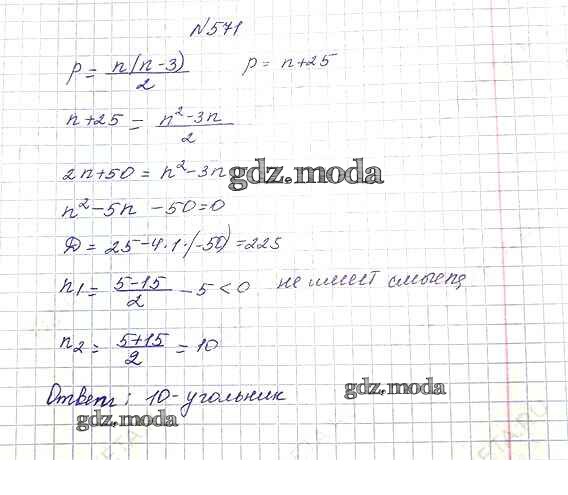 №571
p = n(n-3)/2 p = n+25
n+25 = n²-3n/2
2n+50 = n²-3n
gdz.moda
n²-5n -50=0
D = 25-4·1·(-50)=225
n₁= 5-15/2 - 5<0 не имеет смысла
n₂= 5+15/2 = 10
Ответ: 10-угольник
gdz.moda
gdz.moda